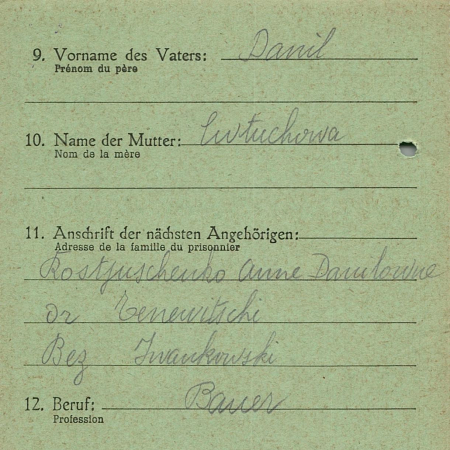 9. Vorname des Vaters: Danil
Prénom du père
10. Name der Mutter: Ewtuchowa
Nom de la mère
11. Anschrift der nächsten Angehörigen:
Adresse de la famille du prisonnier
Kostjuschenko Anne Danilowne
or Tenewitschi
Bez Iwankowski
12. Beruf: Bauer
Profession